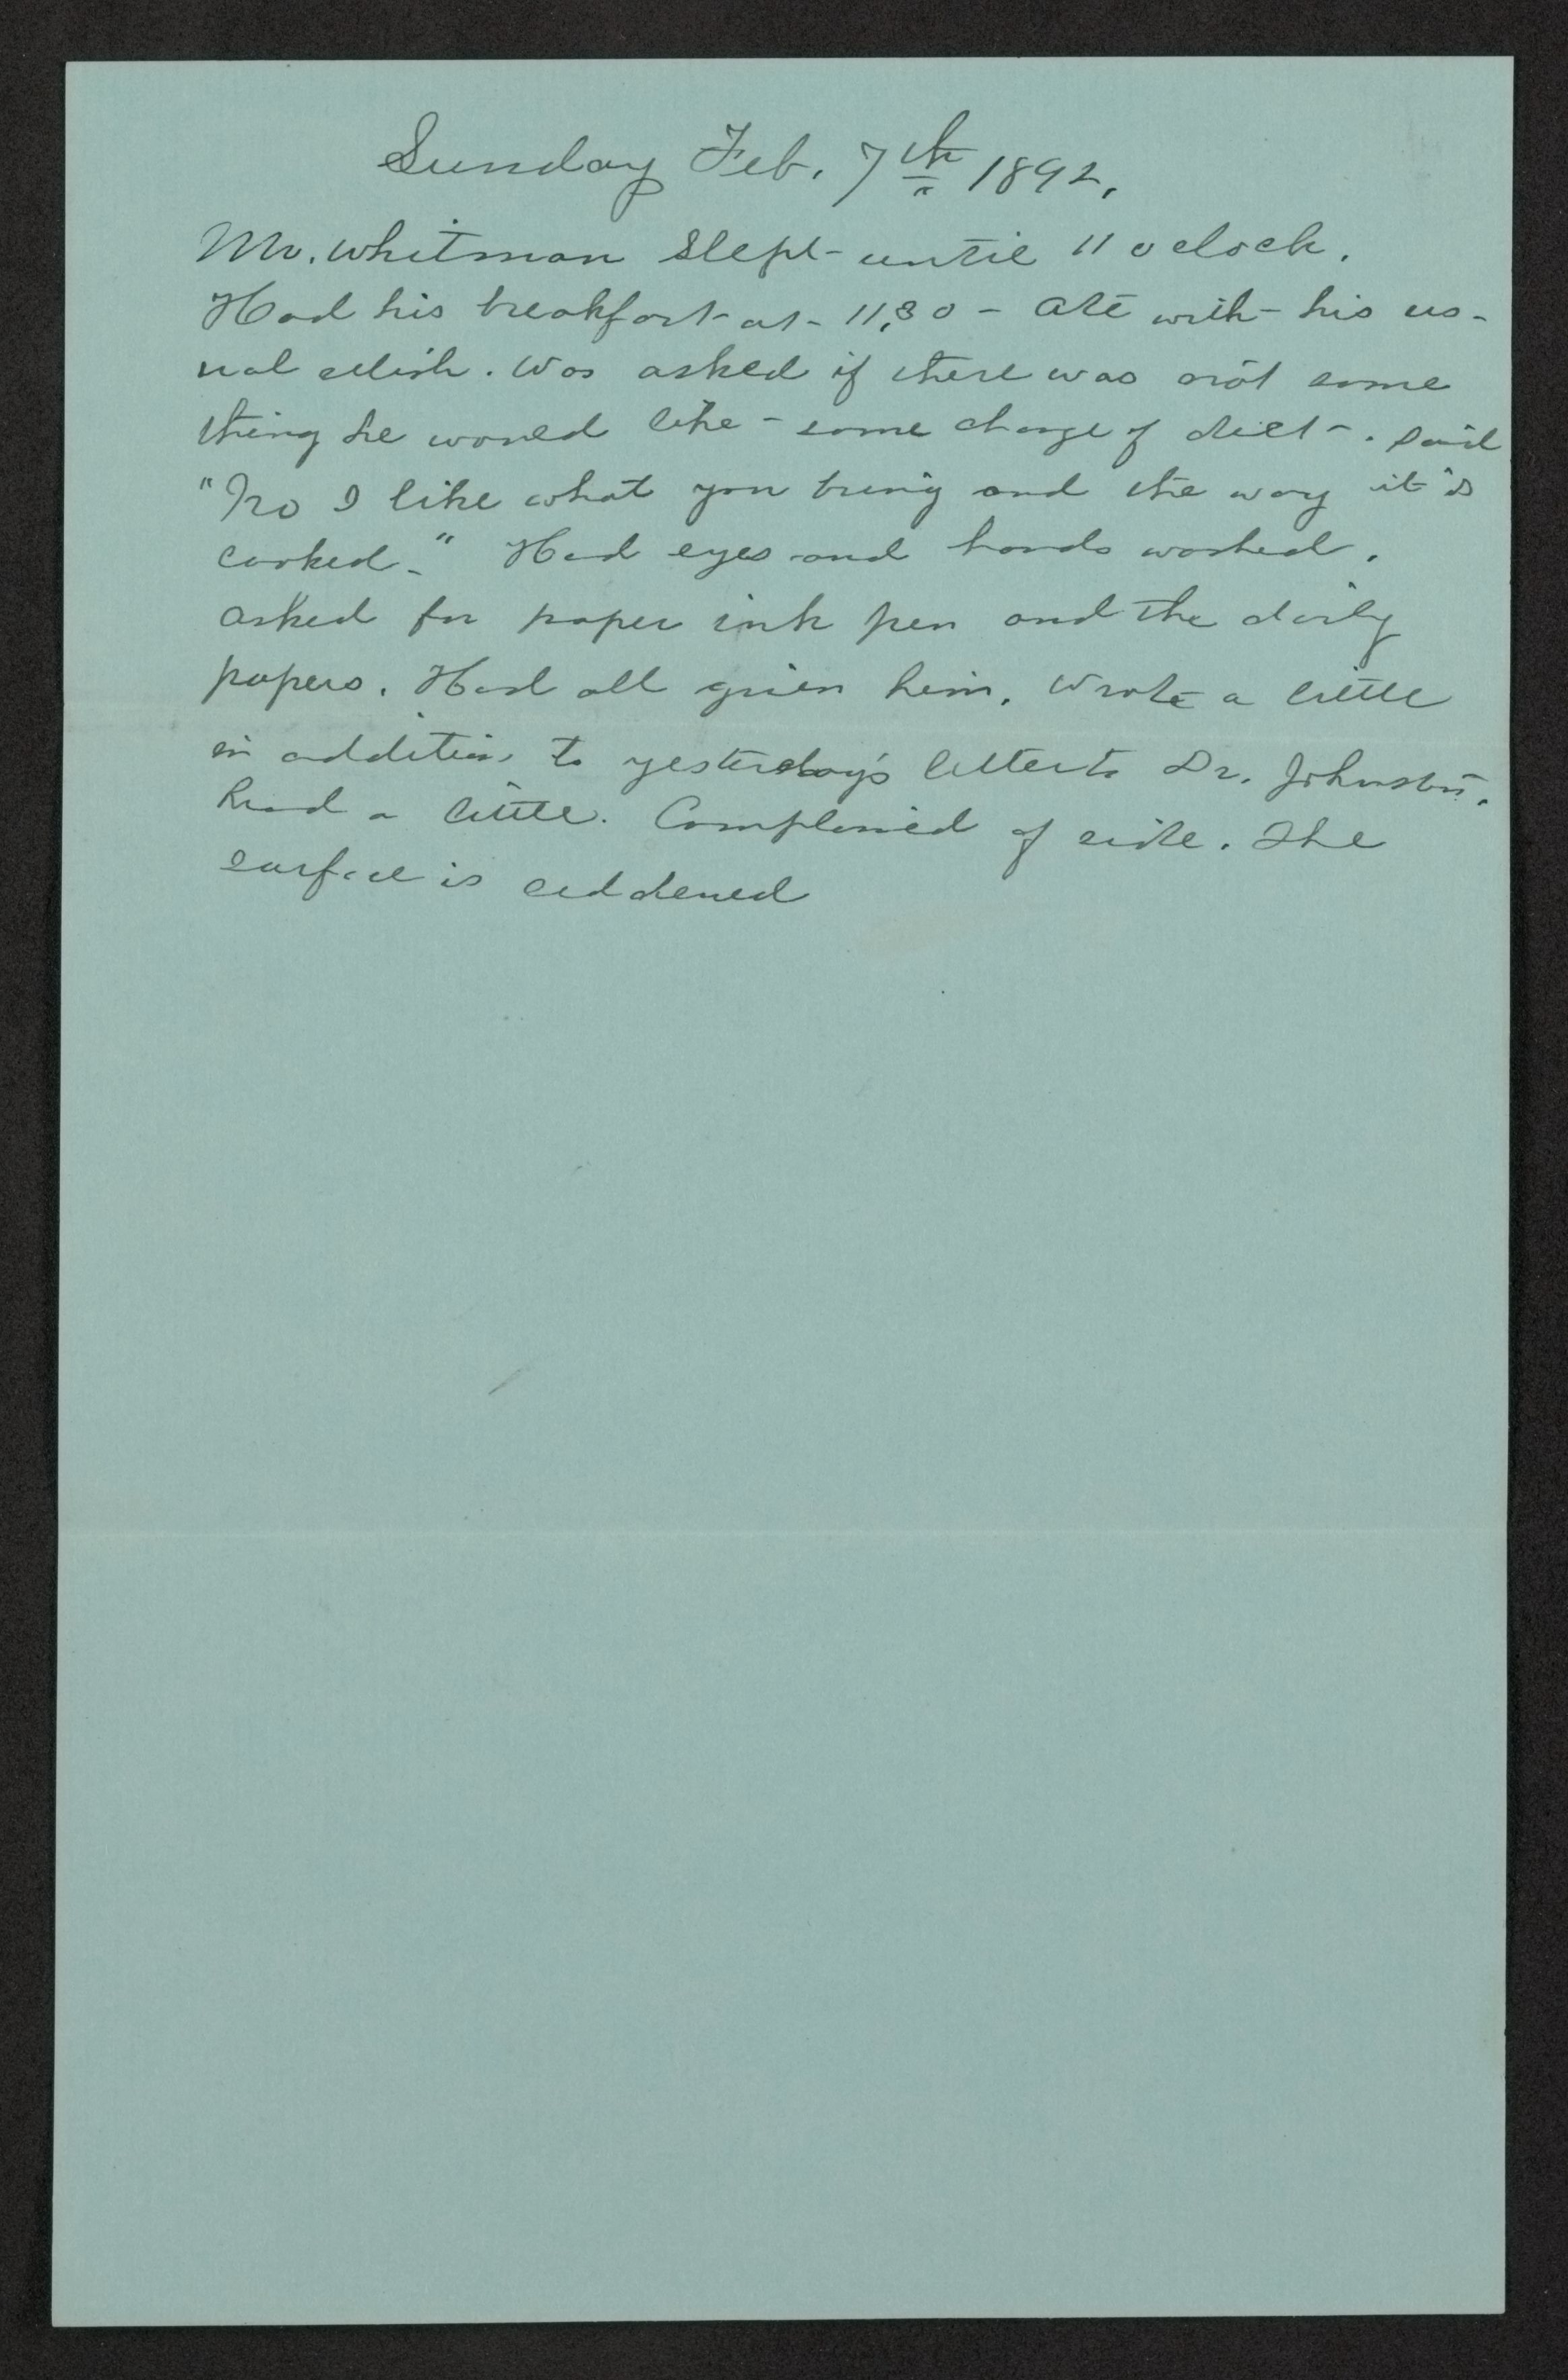 Sunday Feb. 7th 1892.
Mr. Whitman slept until 11 o clock.
Had his breakfast at 11,30 - ate with his us-
ual relish. Was asked if there was not some
thing he would like - some change of diet. Said
"No I like what you bring and the way it's
cooked." Had eyes and hands washed.
asked for paper ink pen and the daily
papers. Had all given him. Wrote a little
in addition to yesterday's letter to Dr. Johnston.
Read a little. Complained of side. The
surface is reddened